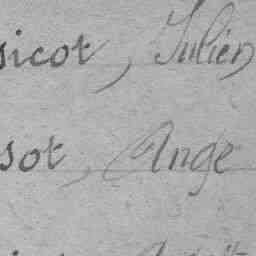 sicot, Julien
sot, Ange